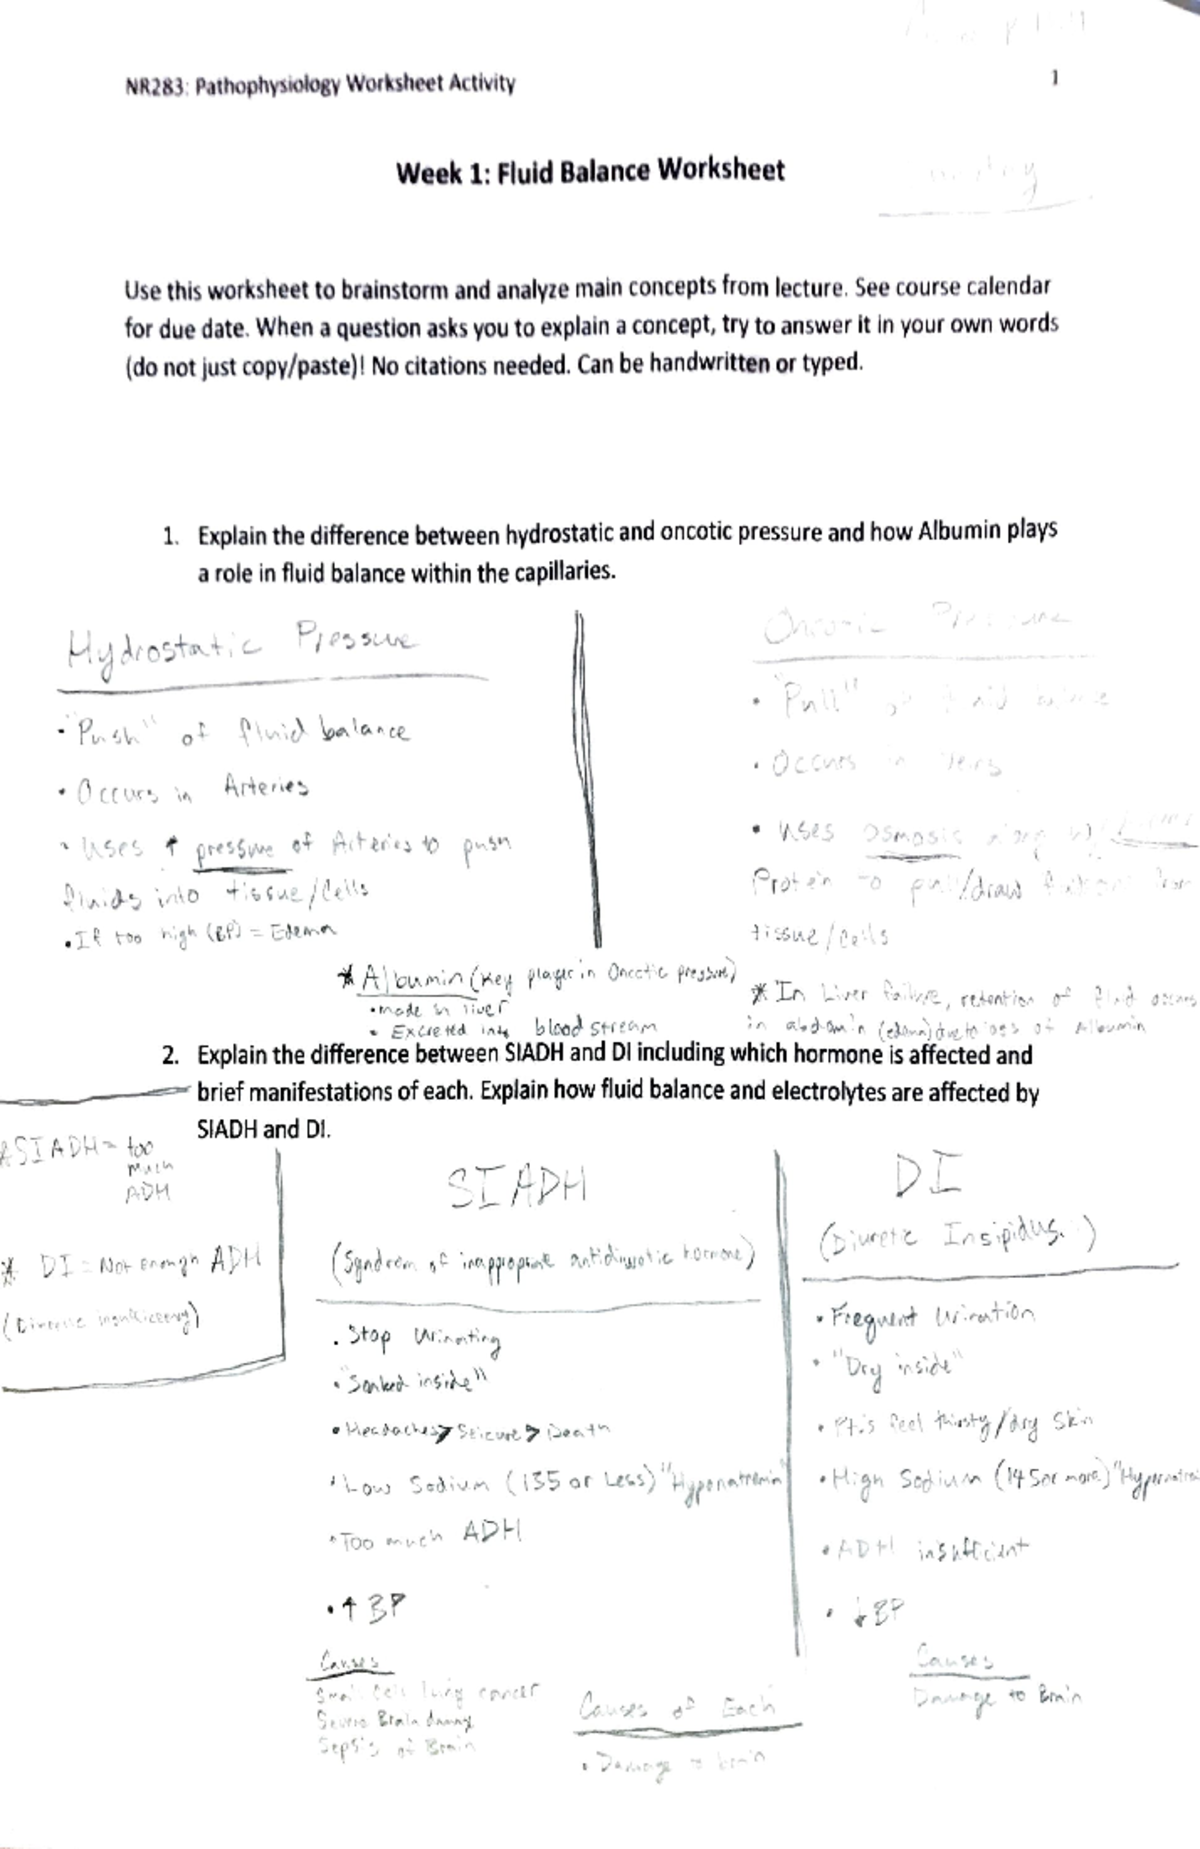 NR283: Pathophysiology Worksheet Activity
1
Week 1: Fluid Balance Worksheet
Use this worksheet to brainstorm and analyze main concepts from lecture. See course calendar
for due date. When a question asks you to explain a concept, try to answer it in your own words
(do not just copy/paste)! No citations needed. Can be handwritten or typed.
1. Explain the difference between hydrostatic and oncotic pressure and how Albumin plays
a role in fluid balance within the capillaries.
Hydrostatic Pressure
• "Push" of fluid balance
• Occurs in Arteries
• Uses ↑ pressure of Arteries to push
fluids into tissue/Cells
• If too high (BP) = Edema
Oncotic Pressure
• "Pull" of fluid balance
• Occurs in Veins
• uses osmosis along w/
Protein to pull/draw from
tissue/cells
* Albumin (Key player in Oncotic pressure)
• made in liver
• Excreted into blood stream
* In Liver failure, retention of fluid occurs
in abdomin (edema) due to loss of Albumin
2. Explain the difference between SIADH and DI including which hormone is affected and
brief manifestations of each. Explain how fluid balance and electrolytes are affected by
SIADH and DI.
*SIADH = too
much
ADH
* DI = Not enough ADH
SIADH
(Syndrom of inappropriate antidiuretic hormone)
• Stop Urinating
• "Soaked inside"
• Headaches > Seizure > Death
• Low Sodium (135 or Less) "Hyponatremia"
• Too much ADH
• ↑ BP
Causes
Small cell lung cancer
Severe Brain damage
Sepsis of Brain
DI
(Diuretic Insipidus)
• Frequent Urination
• "Dry inside"
• Pt.s feel thirsty/dry Skin
• High Sodium (145 or more) "Hypernatremia
• ADH insufficient
• ↓ BP
Causes
Damage to Brain
Causes of Each
• Damage to brain